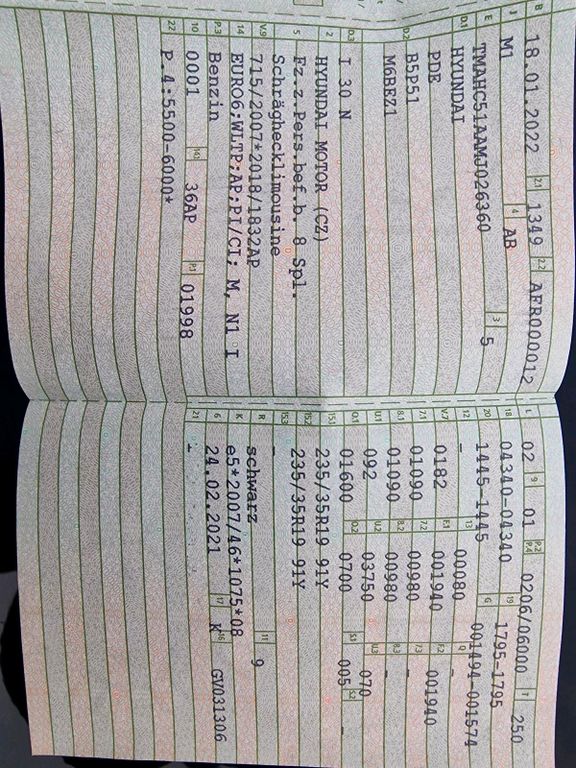 B 18.01.2022 2.1 1349 2.2 AFR000012
J M1 4 AB
E TMAHC51AAMJ026360 3 5
D.1 HYUNDAI
D.2 PDE
B5P51
M6BEZ1
D.3 I 30 N
2 HYUNDAI MOTOR (CZ)
5 Fz.z.Pers.bef.b. 8 Spl.
Schräghecklimousine
V.9 715/2007*2018/1832AP
14 EURO6;WLTP;AP;PI/CI; M, N1 I
P.3 Benzin
10 0001 14.1 36AP P.1 01998
22 P.4:5500-6000*
L 02 9 01 P.2 P.4 0206/06000 T 250
18 04340-04340 19 1795-1795
20 1445-1445 G 001494-001574
12 - 13 00080 Q -
V.7 0182 F.1 001940 F.2 001940
7.1 01090 7.2 00980 7.3 -
8.1 01090 8.2 00980 8.3 -
U.1 092 U.2 03750 U.3 070
O.1 01600 O.2 0700 S.1 005 S.2 -
15.1 235/35R19 91Y
15.2 235/35R19 91Y
15.3 -
R schwarz 11 9
K e5*2007/46*1075*08
6 24.02.2021 17 K 16 GV031306
21 -